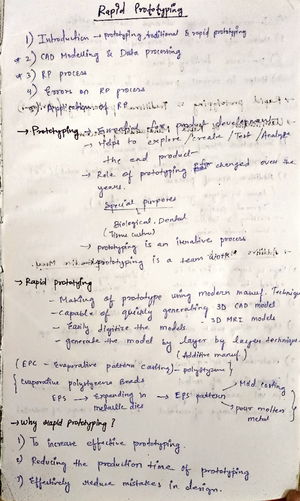 Rapid Prototyping
1) Introduction → prototyping, traditional & rapid prototyping
* 2) CAD Modelling & Data processing
* 3) RP process
4) Errors on RP process
5) Application of RP
→ Prototyping → Essential for product development
→ Helps to explore / Create / Test / Analyze
the end product
→ Role of prototyping changed over the
years.
Special purposes
Biological, Dental
(Tissue culture)
→ prototyping is an iterative process
→ prototyping is a team work
→ Rapid prototyping
- Making of prototype using modern manuf. Techniques
- capable of quickly generating 3D CAD models
- Easily digitize the models. - 3D MRI models
- generate the model by layer by layer technique.
(Additive manuf)
(EPC - Evaporative pattern casting) - polystyrene)
{ Evaporative polystyrene Beads → Mold casting
EPS → Expanding in → EPS pattern
metallic dies → pour molten
metal
→ Why Rapid Prototyping?
1) To increase effective prototyping.
2) Reducing the production time of prototyping
3) Effectively reduce mistakes in design.